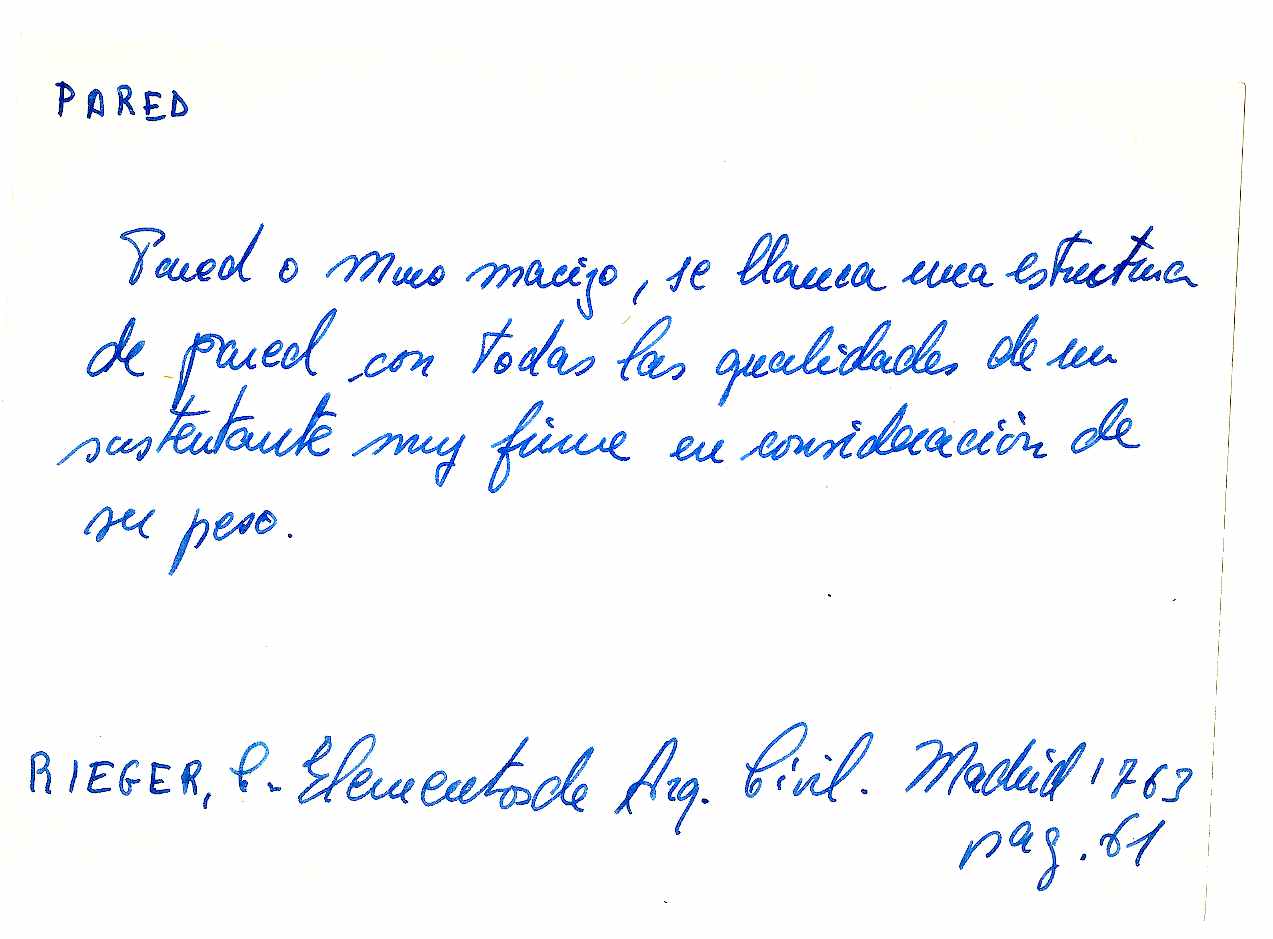 PARED
Pared o muro macizo, se llama una estructura
de pared con todas las qualidades de un
sustentante muy firme en consideración de
su peso.
RIEGER, C. Elementos de Arq. Civil. Madrid 1763
pag. 61